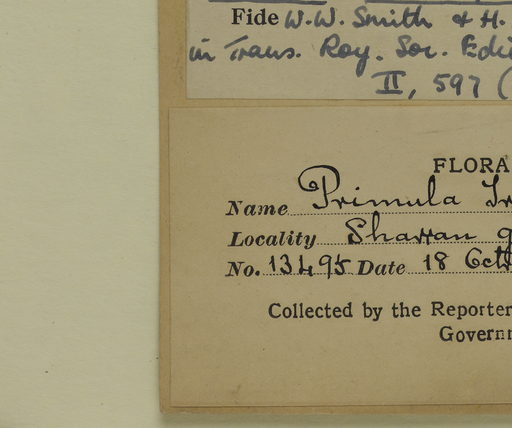 Fide W.W. Smith & H.
in Trans. Roy. Soc. Edi
II, 597 (
FLORA
Name Primula Ir
Locality Sharran g
No. 13495 Date 18 Octr
Collected by the Reporter
Governm